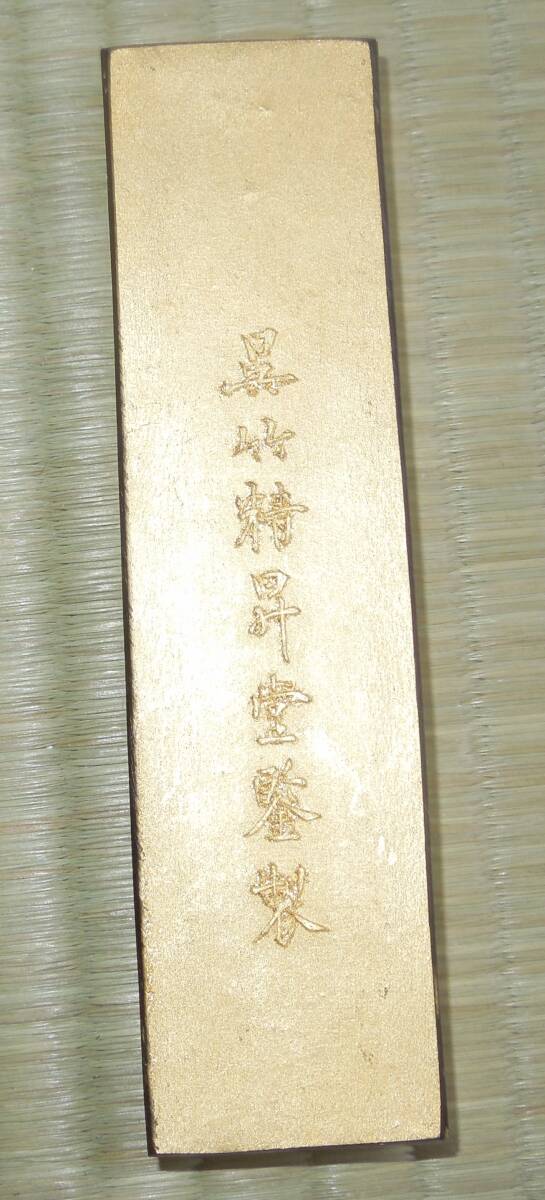 呉竹精昇堂鍳製